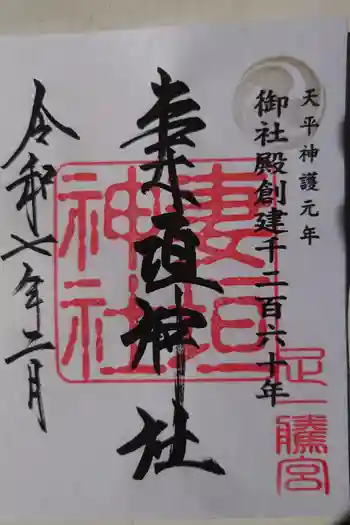 天平神護元年
御社殿創建千二百六十年
妻垣神社
妻垣
神社
足一
騰宮
令和七年二月